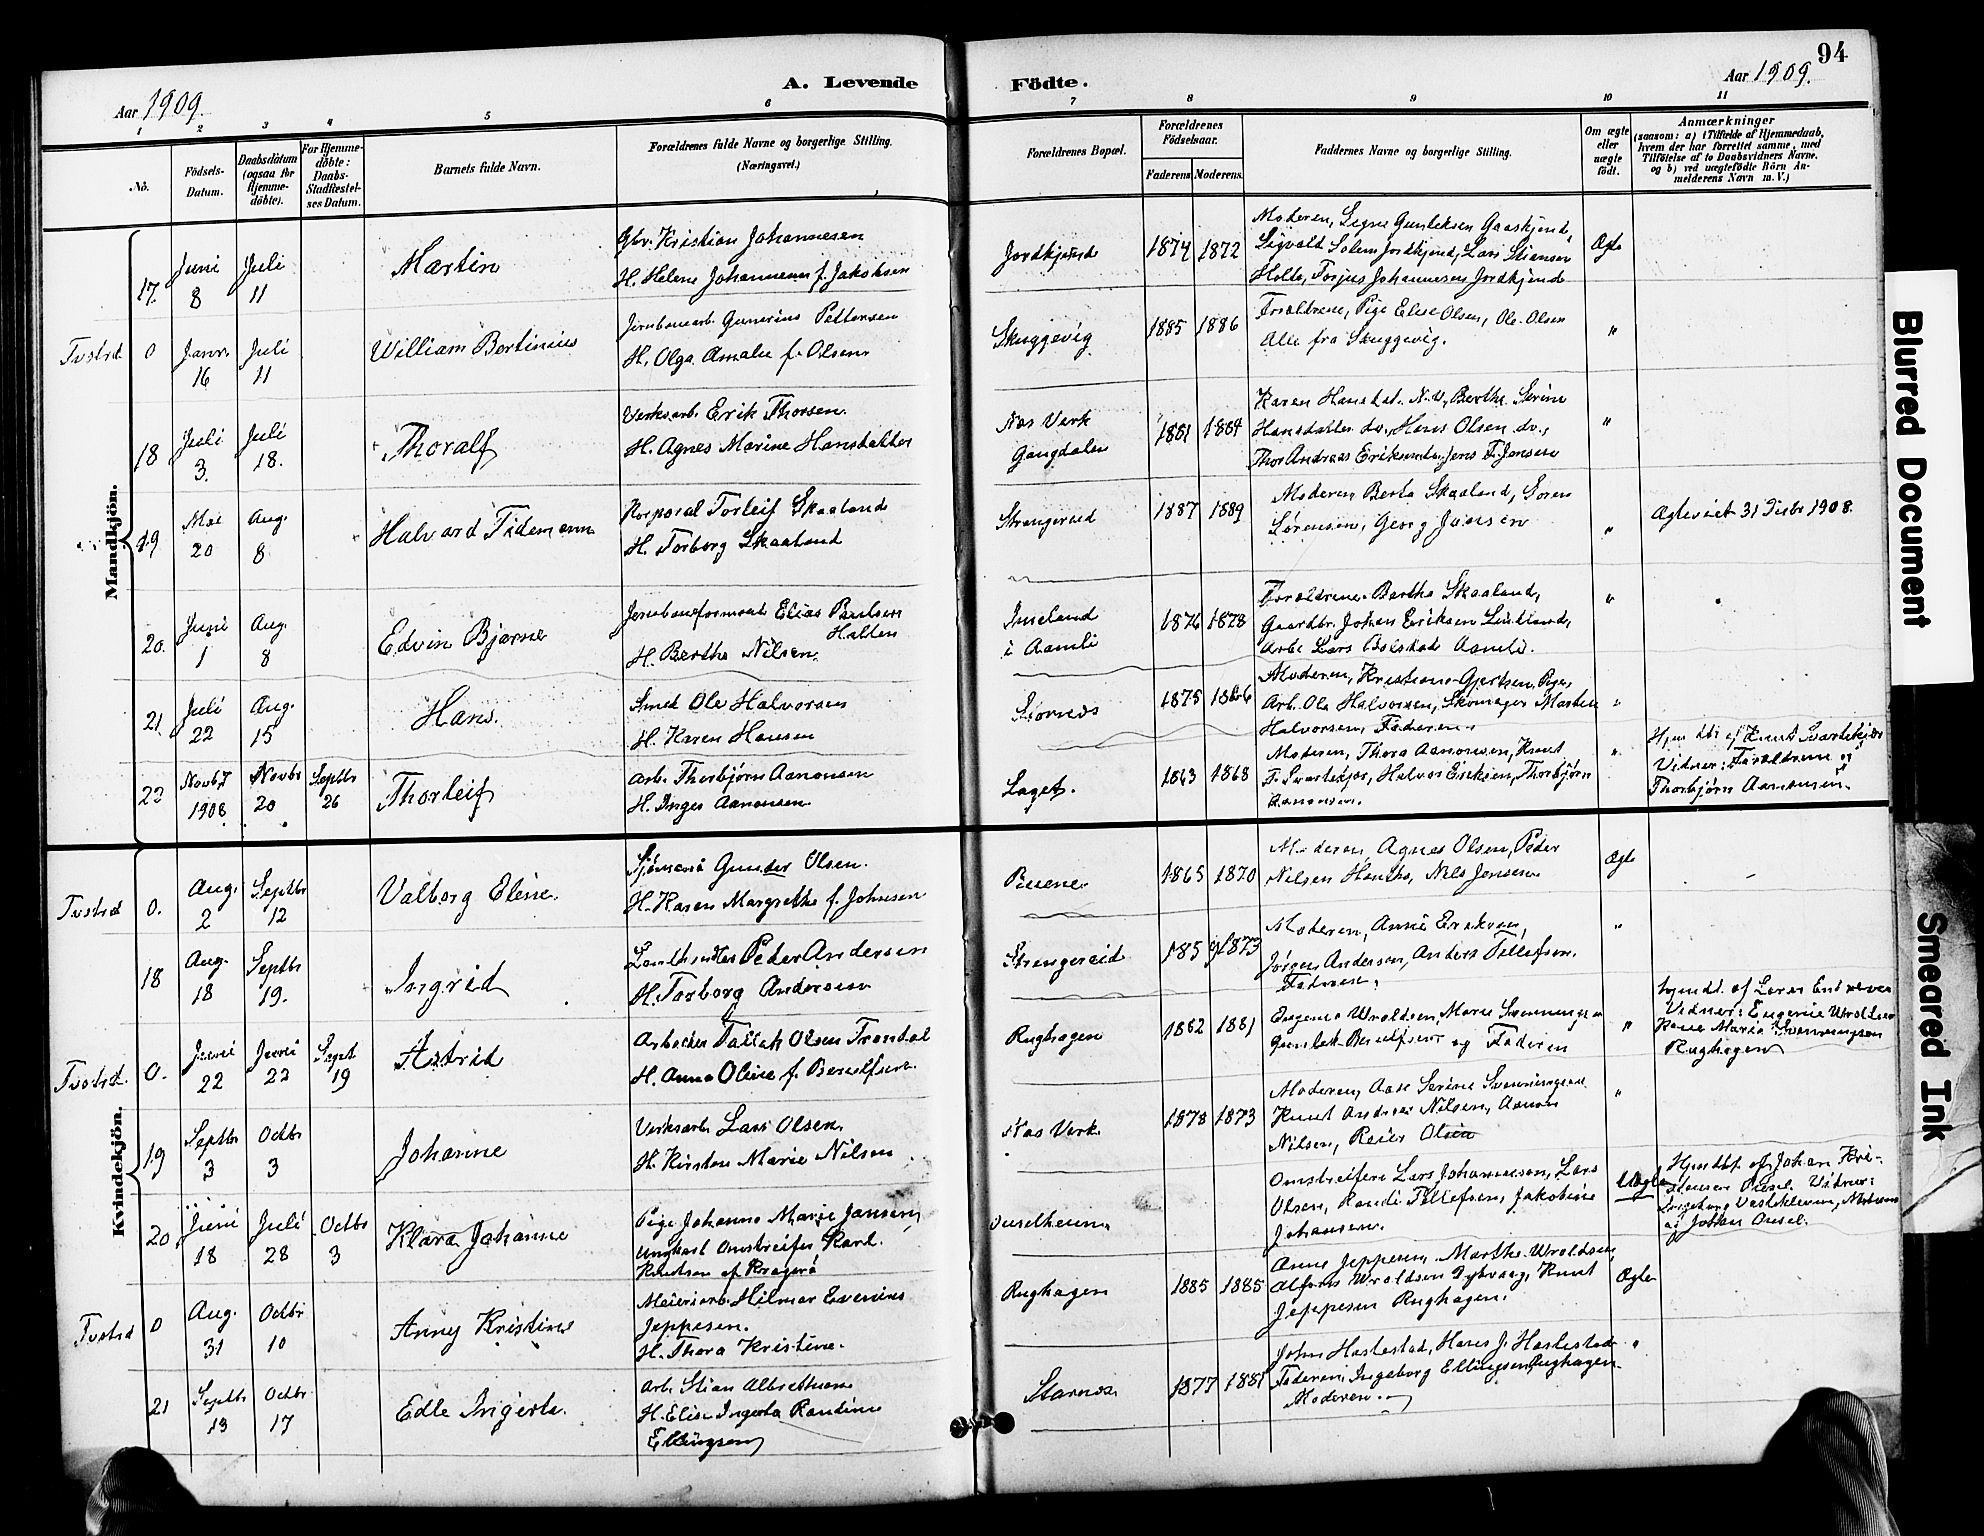 94
A. Levende Födte.
Aar 1909.
Aar 1909.
1 2 3 4 5 6 7 8 9 10 11
No.
Födsels-Datum.
Daabsdatum (ogsaa for Hjemme-döbte).
For Hjemme-döbte: Daabs-Stadfestel-ses Datum.
Barnets fulde Navn.
Forældrenes fulde Navne og borgerlige Stilling.
(Næringsvei.)
Forældrenes Bopæl.
Forældrenes Födselsaar.
Faderens. Moderens.
Faddernes Navne og borgerlige Stilling.
Om ægte eller uægte født.
Anmærkninger
(saasom: a) i Tilfælde af Hjemmedaab,
hvem der har forrettet samme, med
Tilföielse af to Daabsvidners Navne.
og b) ved uægtefödte Börn An-
melderens Navn m. V.)
Mandkjön.
17. Juni 8 Juli 11 Martin
Gbr. Kristian Johannesen
H. Helene Johannesen f. Jakobsen
Jordkjend 1874 1872
Moderen, Signe Gunteksen Gaaskjend,
Sigvald Solem Jordkjend, Lars Stiansen
Holte, Torjus Johannesen Jordkjend
Ægte
Tvstrd 0 Janr. 16 Juli 11 William Bertinius
Jernbanearb. Gunerius Pettersen
H. Olga Amalie f. Olsen
Skuggevig 1885 1886
Forældrene, Pige Elise Olsen, Ole Olsen
Alle fra Skuggevig.
"
18 Juli 3. Juli 18. Thoralf
Verksarb. Erik Thorsen.
H. Agnes Marine Hansdatter
Nes Verk Gangdalen 1881 1884
Karen Hansdat. N.V., Berthe Serine
Hansdatter do., Hans Olsen do.,
Thor Andreas Eriksen do., Jens F. Jensen
"
19 Mai 20 Aug. 8 Halvard Tidemann
Korporal Torleif Skaaland
H. Torborg Skaaland
Strengereid 1887 1889
Moderen Berta Skaaland, Søren
Sørensen, Georg Jensen
"
Ægteviet 31 Decbr 1908.
20. Juni 1 Aug. 8 Edvin Bjarne
Jernbaneformand Elias Paulsen
Holten
H. Berthe Nilsen.
Simeland i Aamli 1876 1878
Forældrene. Bertha Skaaland,
Gaardbr. Johan Eriksen Lindland,
Arb. Lars Bolstad Aamli.
"
21 Juli 22 Aug. 15 Hans.
Smed Ole Halvorsen
H. Karen Hansen
Stornes 1875
Moderen, Kristiane Gjertsen, Pige,
Arb. Ole Halvorsen, Skomager Morten
Halvorsen, Faderen.
"
22 Novb. 7 1908 Novbr 20 Septbr 26 Thorleif
Arb. Thorbjørn Aanonsen
H. Inger Aanonsen
Laget. 1863 1868
Moderen, Thora Aanonsen, Knut
T. Svartekjær, Halvor Eriksen, Thorbjørn
Aanonsen.
"
Hjm dbt af Knut Svartekjær
Vidner: Forældrene og
Thorbjørn Aanonsen.
Kvindekjön.
Tvstrd 0. Aug. 2 Septbr 12 Valborg Eline.
Sjømand Gunder Olsen.
H. Karen Margrethe f. Johnsen
1865 1870
Moderen, Agnes Olsen, Peder
Nilsen Hantho, Nils Jensen
Ægte
18 Aug. 18 Septbr 19. Ingrid
Landhandler Peder Andersen
H. Torborg Andersen
Strengereid 1859 1873
Moderen, Anne Eriksen,
Jørgen Andersen, Anders Tellefsen.
Faderen.
"
Tvstrd. 0. Juni 22 Juni 22 Sept 19 Astrid
Arbeider Tallak Olsen Trondal
H. Anna Oline f. Berulfsen.
Rughagen 1882 1881
Eugenie Uroldsen, Marie Svenningsen
Gunstein Berulfsen og Faderen
"
hjmdt. af Laren Entresen
Vidner: Eugenie Uroldsen
Kone Marie Svenningsen
Rughagen
19 Septbr 3 Octbr 3 Johanne
Verksarb. Lars Olsen.
H. Kirsten Marie Nilsen
Nes Verk 1878 1873
Moderen, Aase Serine Svenningsen
Knut Andreas Nilsen, Aanon
Nilsen, Reier Olsen
"
20 Juni 18 Juli 28 Octbr 3 Klara Johanne
Pige Johanne Marie Jansen,
Ungkarl Omstreifer Karl
Knudsen af Kragerö
Ouselheien
Omstreifere Lars Johannesen, Lars
Olsen, Randi Tellefsen, Jakobine
Johansen.
Uægte
Hjmdbt. af Johan Kri-
stensen Ousel. Vidner:
Ingeborg Vestekleven, Moderen
og Johan Ousel.
Tvstrd 0 Aug. 31 Octbr 10 Anny Kristine
Meieriarb. Hilmar Evenius
Jeppesen.
H. Thora Kristine.
Rughagen 1885 1885
Anne Jeppesen, Marthe Uroldsen,
Alfons Uroldsen Dybvaag, Knut
Jeppesen Rughagen.
Ægte
21 Septbr 13 Octbr 17 Edle Ingerta.
Arb. Stian Albrethsen
H. Elise Ingerta Randine
Ellingsen
Starnes 1877 1881
John Hastestad, Hans J. Hastestad
Faderen, Ingeborg Ellingsen Rughagen
Moderen.
"
Blurred Document
Smeared Ink